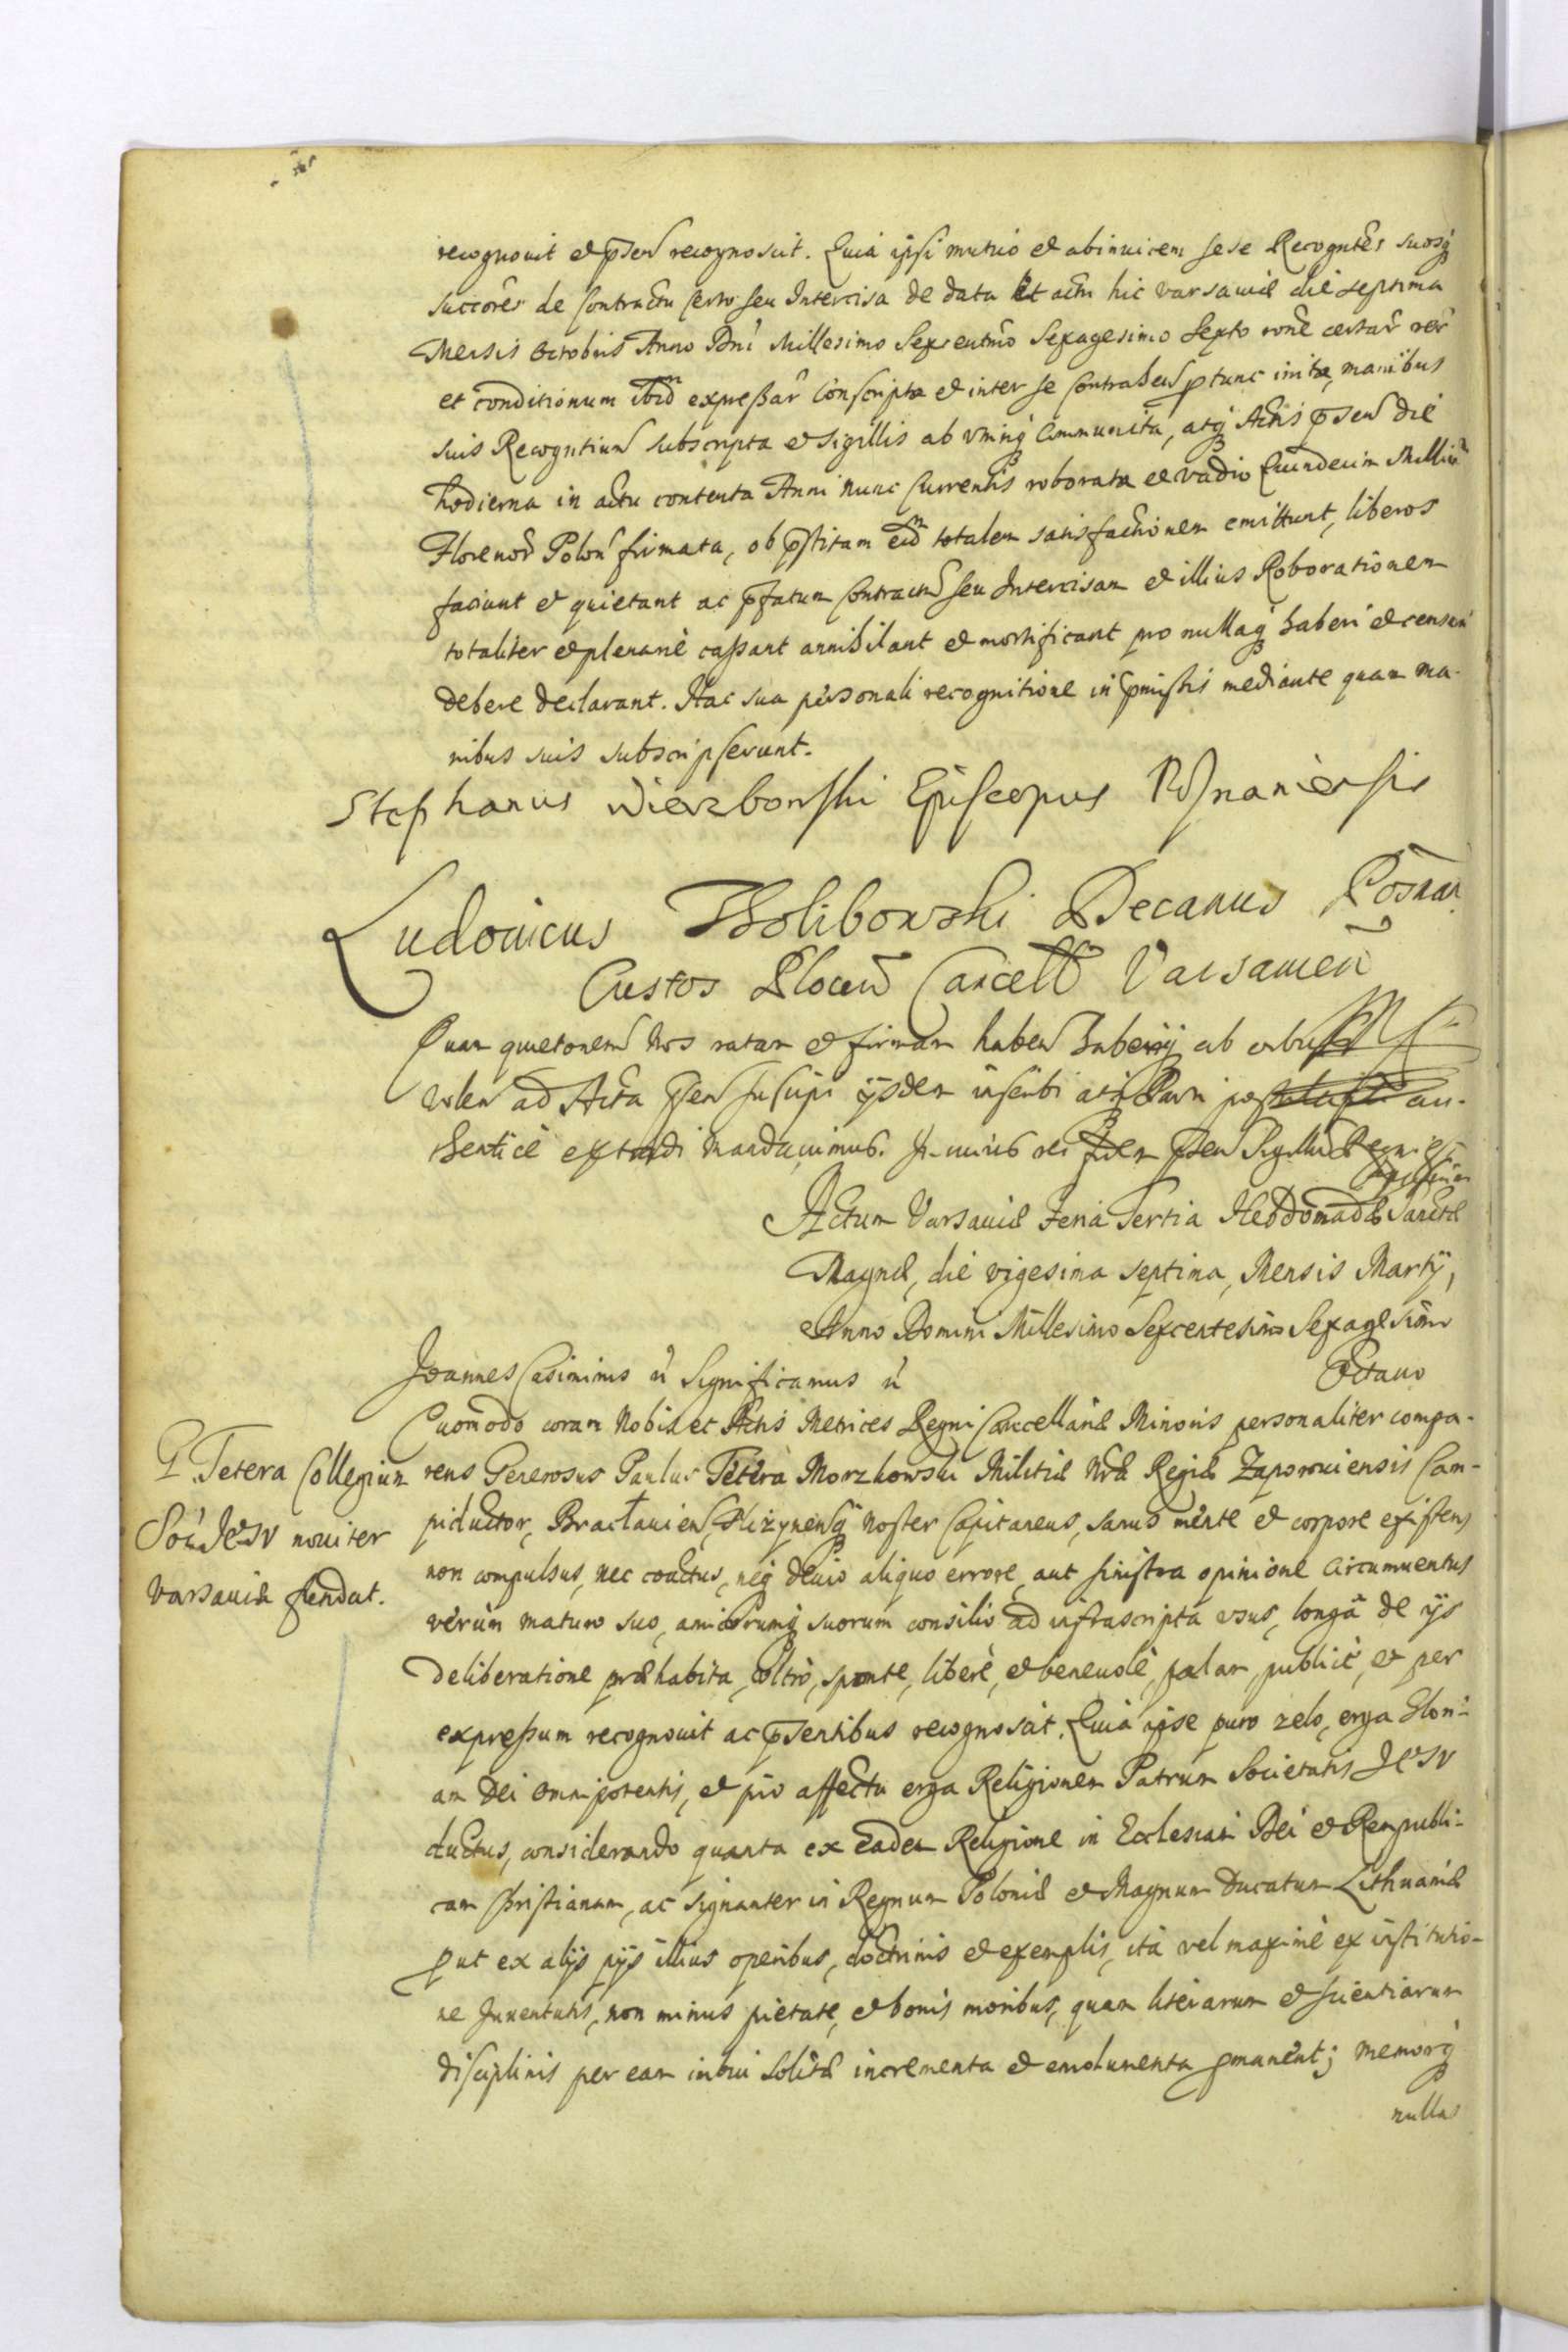 recognovit et p̄sen recognoscit. Quia ipsi mutuo et abinuicem sese Recogntēs suosq́
succorēs de Contractu certo seu Intercisa de data et actu hic Varsauiæ die septima
Mensis Octobris Anno Dn̄i Millesimo Sexcentmō Sexagesimo Sexto rōne certar̄ rer̄
et conditionum ibid̄m expressar̄ conscripta et inter se Contrahen ptunc inita, manibus
suis Recogntium subscripta et sigillis ab vtrinq́ Communita, atq́ Actis p̄sen die
hodierna in actu contenta Anni nunc Currentis roborata et vadio Quindecim Milliū
Florenor̄ Polon̄ firmata, ob p̄stitam eīd̄m totalem satisfactionem emittunt, liberos
faciunt et quietant ac p̄fatum Contractū seu Intercisam et illius Roborationem
totaliter et plenariè cassant annihilant et mortificant pro nullaq́ haberi et censeri
debere declarant. Hac sua personali recognitione in p̄missis mediante quam ma-
nibus suis subscripserunt.
Stephanus Wierzbowski Episcopus Posnaniensis
Ludouicus Tholibowski Decanus Posnan
Custos Plocen̄ Cancell Varsauien̄
Quam quietonem Nos ratam et firmam haben
volen ad Acta p̄sen suscipi ijsdem inscribi au-
thenticè extradi Mandauimus. In cuius rei fidem p̄sen Sigillū Regni est
Actum Varsauiæ Feria Tertia Hebdomadæ Sanctæ
Magnæ, die vigesima septima, Mensis Martij,
Anno Domini Millesimo Sexcentesimo Sexagesimo
Octauo
Joannes Casimirus ꝛc̄ Significamus ꝛc̄
Quomodo coram Nobis et Actis Metrices Regni Cancellariæ Minoris personaliter compa-
G. Tetera Collegium
Soc̄ Jesv nouiter
Varsauiæ fundat.
rens Generosus Paulus Tetera Morzkowski Militiæ Nr̄æ Regiæ Zaporouiensis Cam-
piductor, Bracłauien, Niżynensq́ Noster Capitaneus, sanus mente et corpore existens
non compulsus, nec coactus, neq́ deuio aliquo errore, aut sinistra opinione circumuentus
verùm maturo suo, amicorumq́ suorum consilio ad infrascripta vsus, longâ de ijs
deliberatione præhabita, vltrò, sponte, liberè, et beneuolè, palam, publicè, et per
expressum recognouit ac p̄sentibus recognoscit. Quia ipse puro zelo, erga Glori-
am Dei omnipotentis, et pio affectu erga Religionem Patrum Societatis Jesv
ductus, considerando quanta ex eadem Religione in Ecclesiam Dei et Rempubli-
cam Christianam, ac signanter in Regnum Poloniæ et Magnum Ducatum Lithuaniæ
put ex alijs pijs illius operibus, doctrinis et exemplis, ita vel maximè ex institutio-
ne Juuentutis, non minus pietate, et bonis moribus, quam literarum et scientiarum
disciplinis per eam imbui solitæ incrementa et emolumenta pmanent; Memorq́
nullas